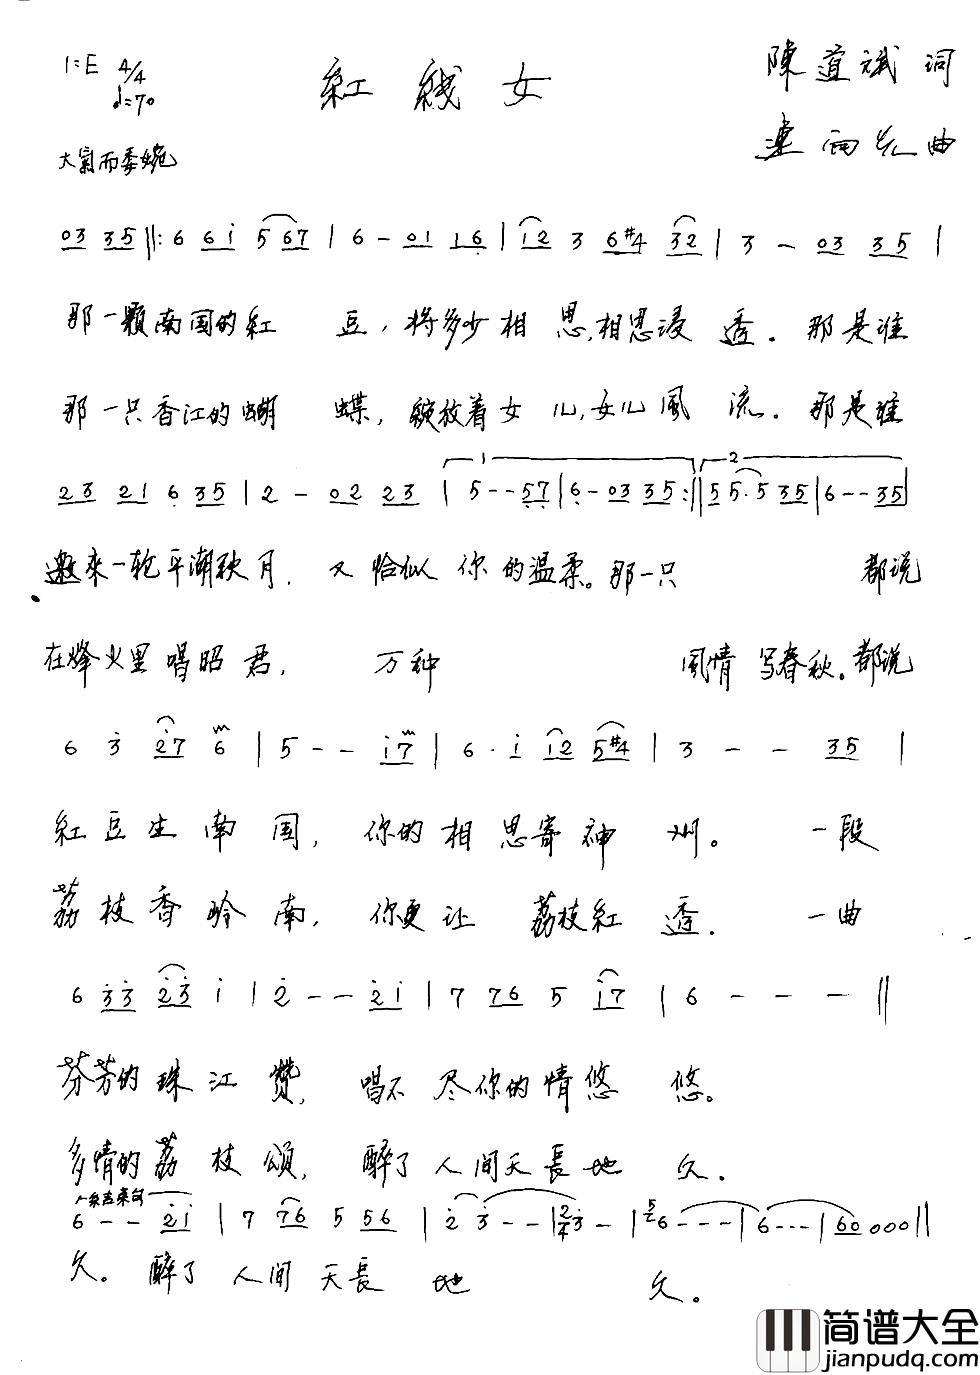 1=E 4/4
♩=70
紅线女
陳道斌 词
連向先 曲
大氣而委婉
03 35 ‖: 6 6i 5 67 | 6 - 01 16 | i2 3 6#4 32 | 3 - 03 35 |
那一颗南国的紅 豆,将多少相 思,相思浸 透。那是谁
那一只香江的蝴 蝶,绽放着女 儿,女儿風 流。那是谁
23 21 6 35 | 2 - 02 23 | 1 5 - - 57 | 6 - 03 35 :‖ 2 55·5 35 | 6 - - 35 |
邀來一轮平湖秋月,又恰似 你的温柔。那一只 都说
在烽火里唱昭君, 万种 風情 写春秋。都说
6 3 27 6 | 5 - - i7 | 6· i i2 5#4 | 3 - - 35 |
紅豆生南国, 你的相思寄神州。 一段
荔枝香岭南, 你更让 荔枝紅透. 一曲
6 33 23 i | 2 - - 2i | 7 76 5 i7 | 6 - - - ‖
芬芳的珠江赞, 唱不尽你的情悠 悠。
多情的荔枝颂, 醉了人间天長地 久.
6 - - 2i | 7 76 5 56 | 2 3 - - | 2/4 3 - | 5/2 6 - - - | 6 - - - | 60 000 ‖
久。 醉了 人间 天長 地 久。
简谱大全
jianpudq.com